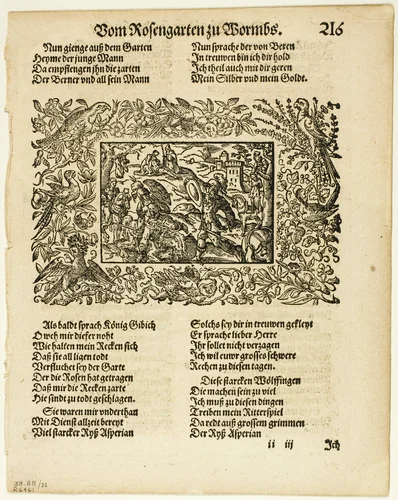 Vom Rosengarten zu Wormbs. 216
Nun gienge auß dem Garten
Heyme der junge Mann
Da empfiengen jhn die zarten
Der Berner vnd all sein Mann
Nun sprache der von Beren
In treuwen bin ich dir hold
Ich theil auch mit dir geren
Mein Silber vnd mein Goldt.
Als baldt sprach König Gibich
O weh mir dieser noht
Wie halten mein Recken sich
Daß sie all ligen todt
Verfluchet sey der Garte
Der die Rosen hat getragen
Daß mir die Recken zarte
Hie sindt zu todt geschlagen.
Sie waren mir vnderthan
Mit Dienst allzeit bereyt
Viel starcker Ryß Asperian
Solchs sey dir in treuwen gekleyt
Er sprache lieber Herre
Ihr sollet nicht verzagen
Ich wil euwr grosses schwere
Rechen zu diesen tagen.
Diese starcken Wölffingen
Die machen sein zu viel
Ich muß zu diesen dingen
Treiben mein Ritterspiel
Da redt auß grossem grimmen
Der Ryß Asperian
ii iij Ich